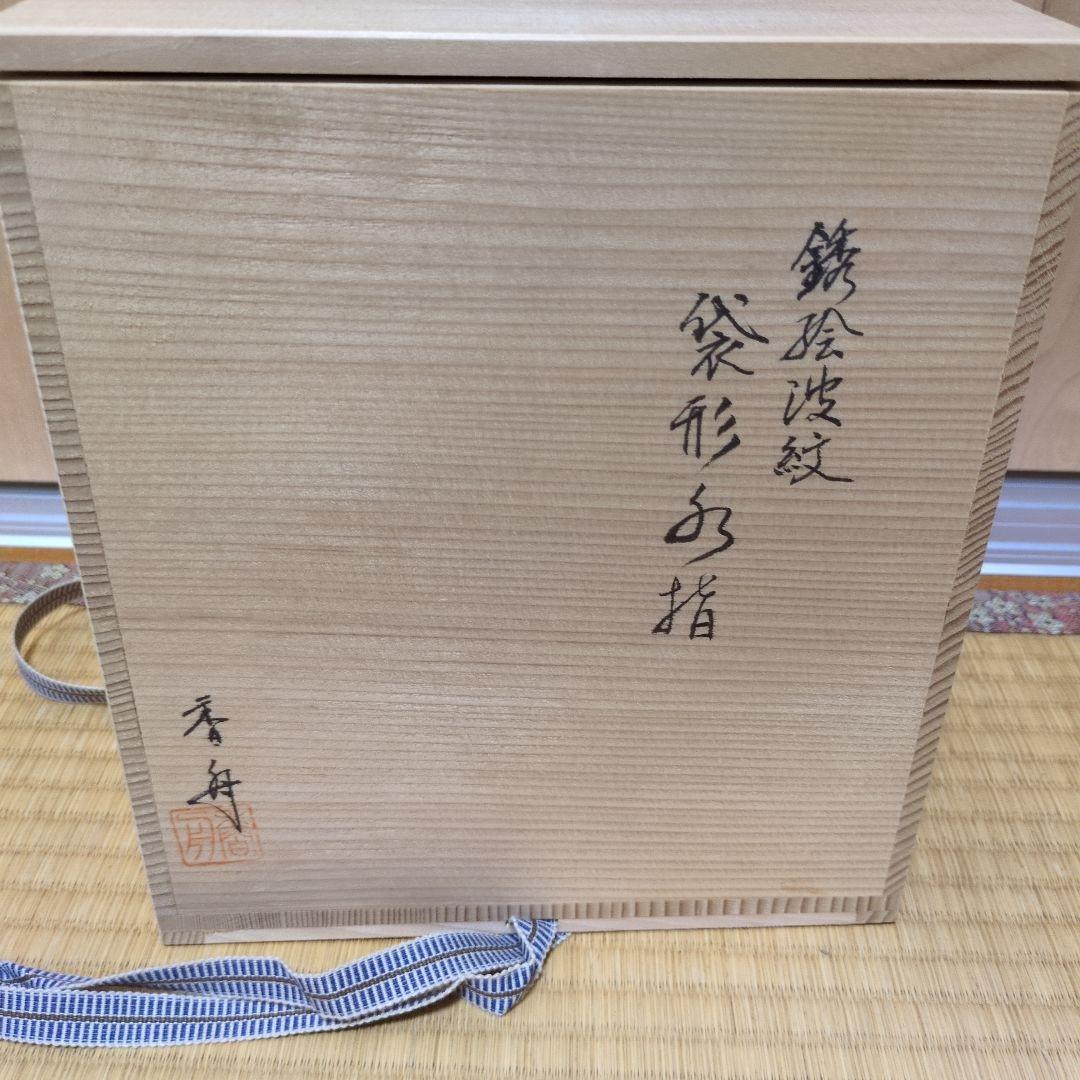 銹絵波紋
袋形水指
香舟